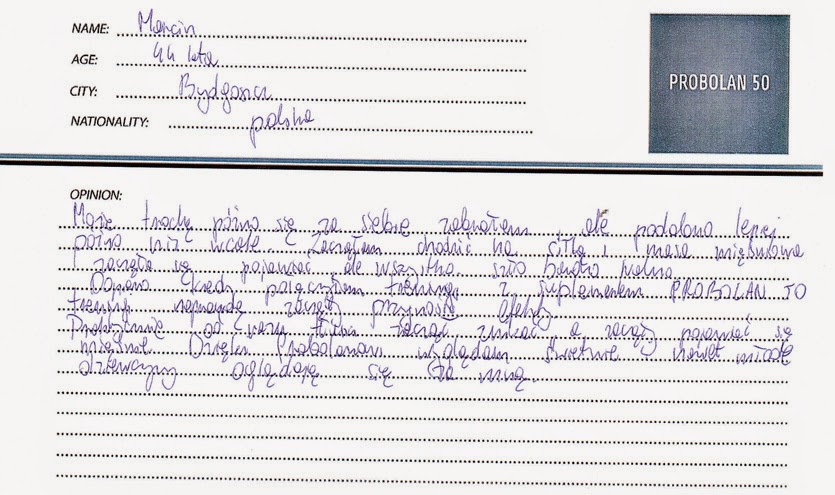 NAME: Marcin
AGE: 44 lata
CITY: Bydgoszcz
NATIONALITY: polska
PROBOLAN 50
OPINION:
Może trochę późno się za siebie zabrałem, ale podobno lepiej
późno niż wcale. Zacząłem chodzić na siłkę i masa mięśniowa
zaczęła się pojawiać ale wszystko szło bardzo wolno.
Dopiero kiedy połączyłem treningi z suplementem PROBOLAN 50
treningi naprawdę zaczęły przynosić efekty.
Praktycznie od razu tłuszcz zaczął znikać a zaczęły pojawiać się
mięśnie. Dzięki Probolanowi wyglądam świetnie i nawet młode
dziewczyny oglądają się za mną.